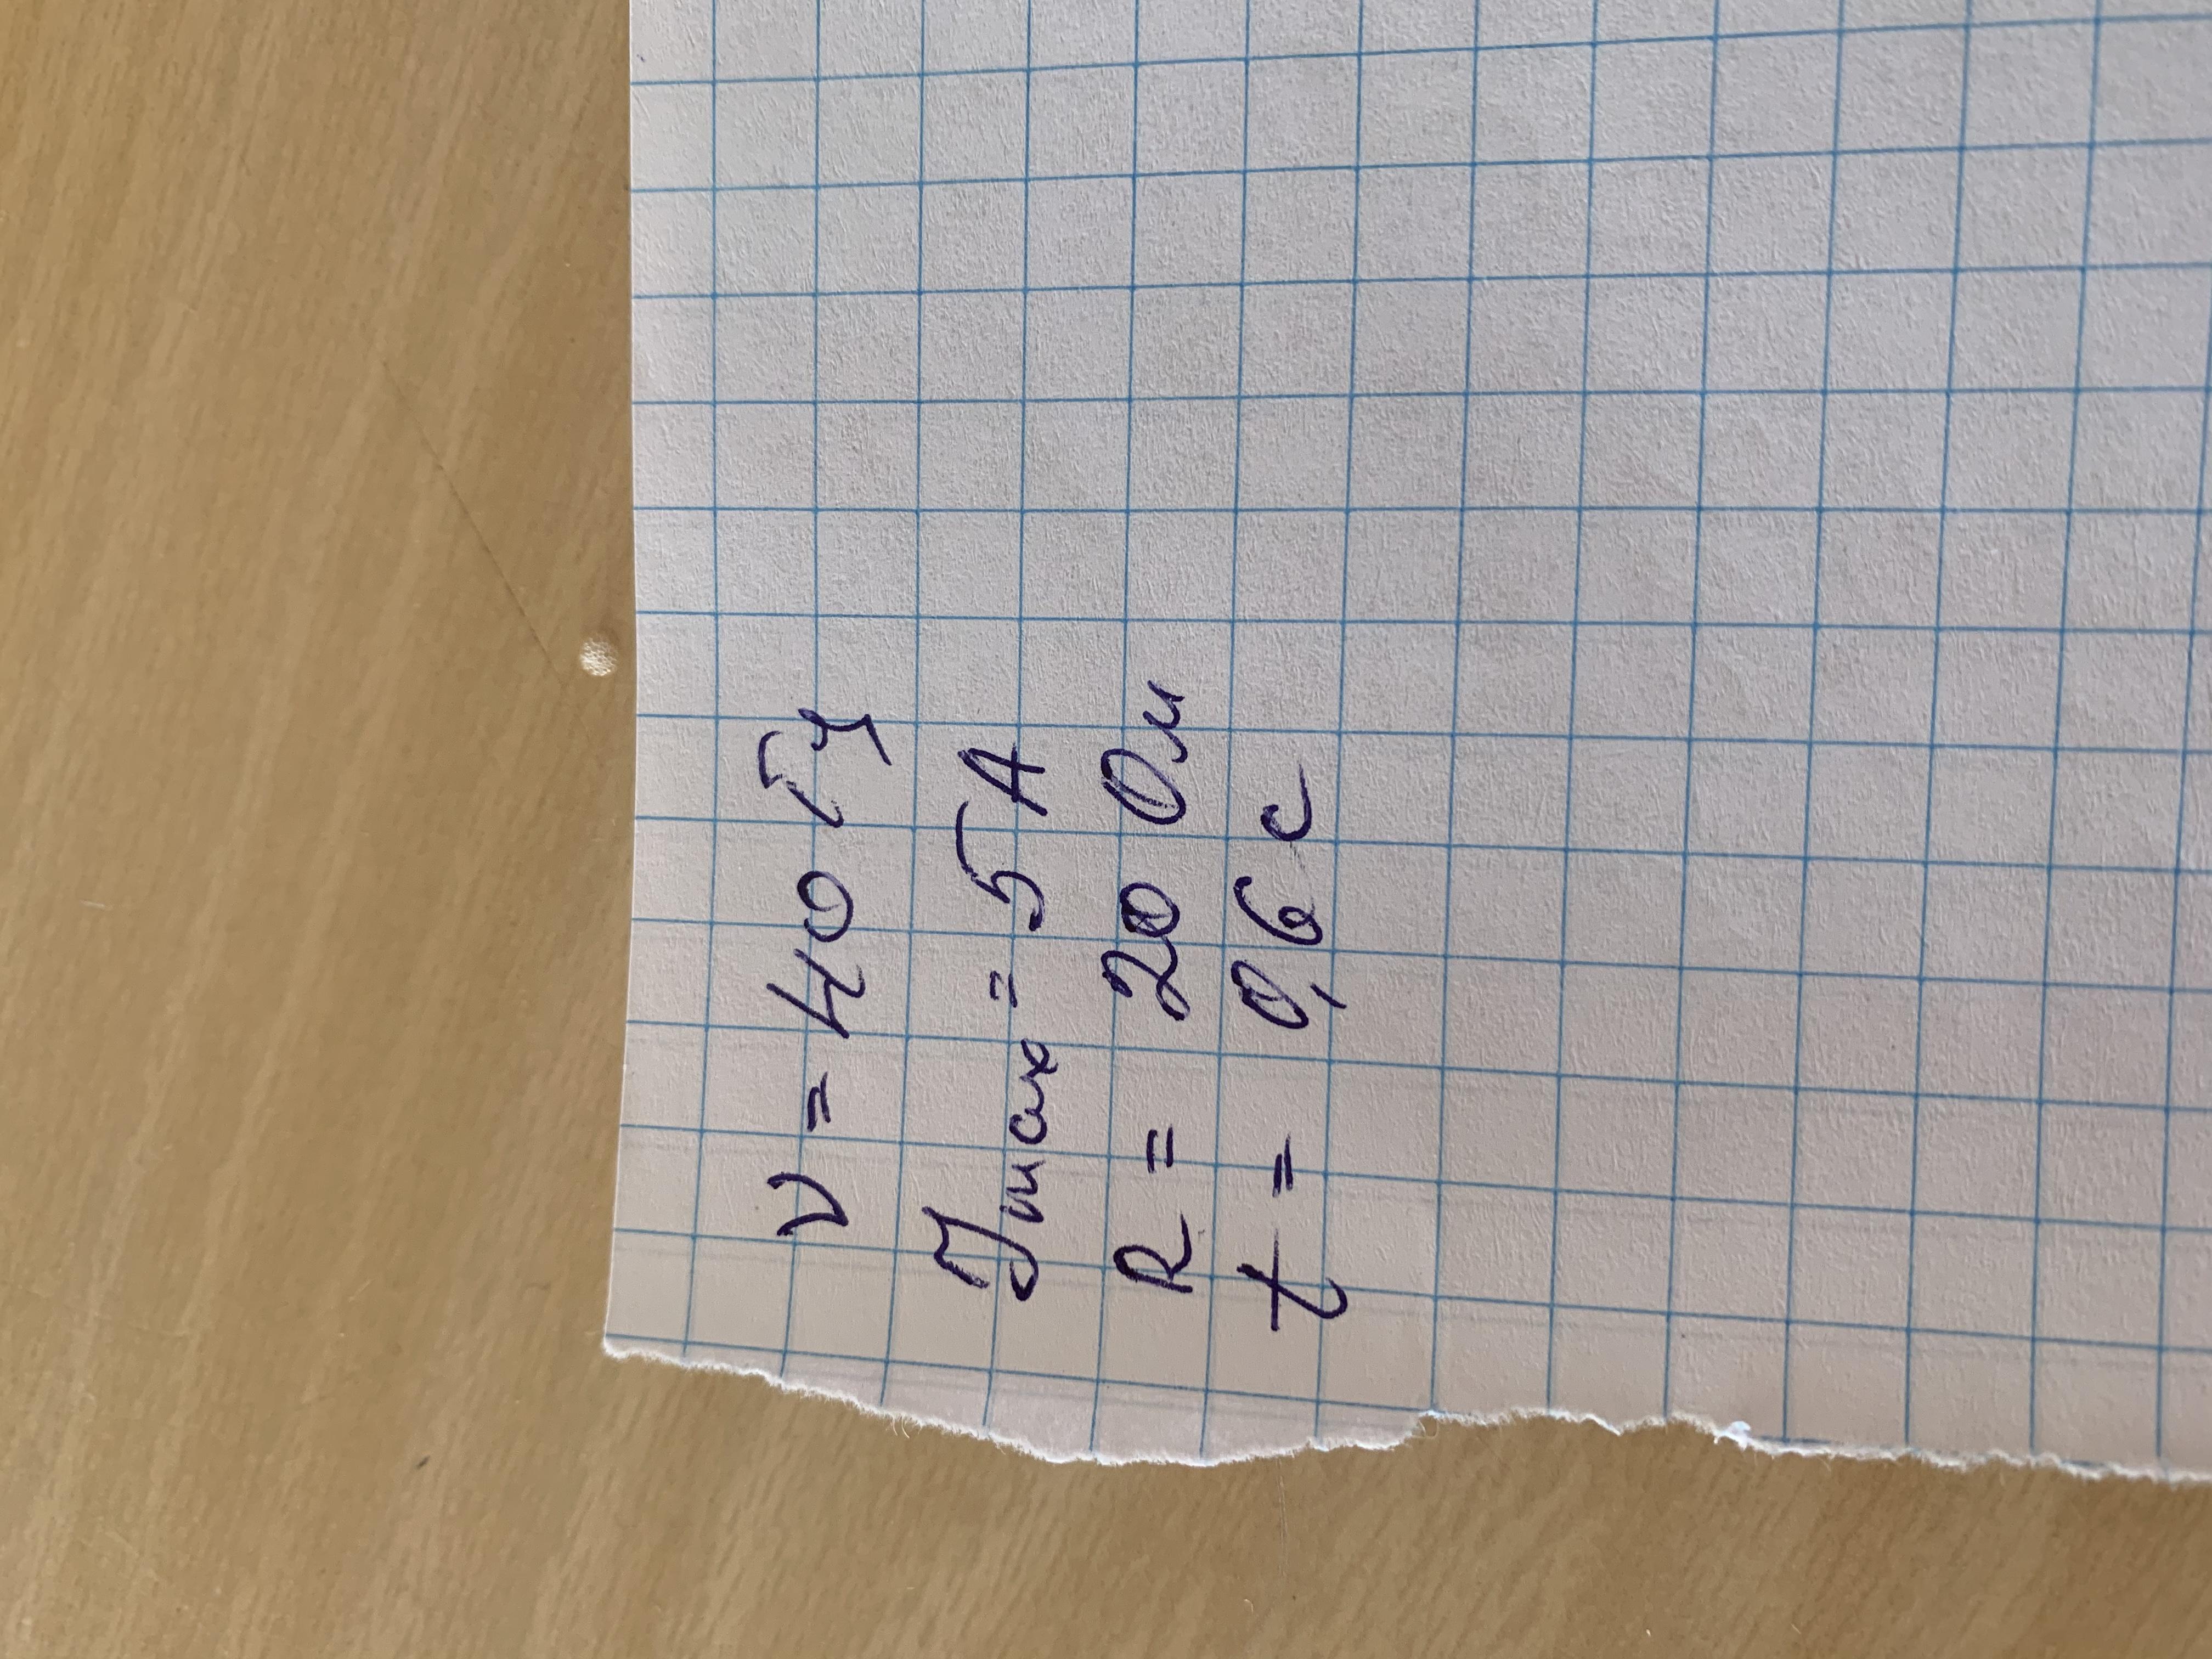 ν = 40 Гц
Jmax = 5 А
R = 20 Ом
t = 0,6 с